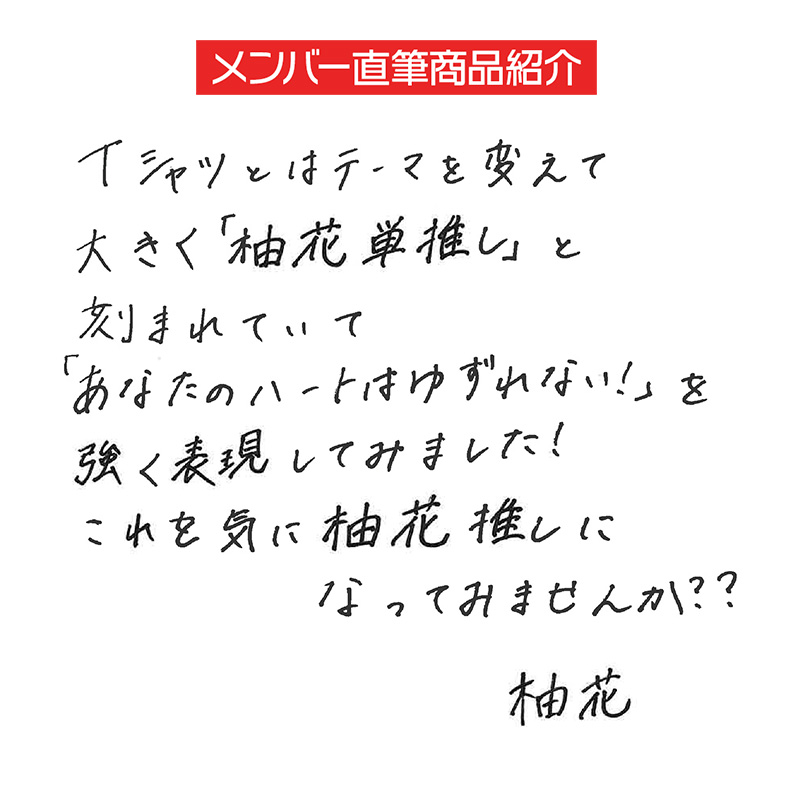 メンバー直筆商品紹介
Tシャツとはテーマを変えて
大きく「柚花単推し」と
刻まれていて
「あなたのハートはゆずれない!」を
強く表現してみました!
これを気に柚花推しに
なってみませんか??
柚花